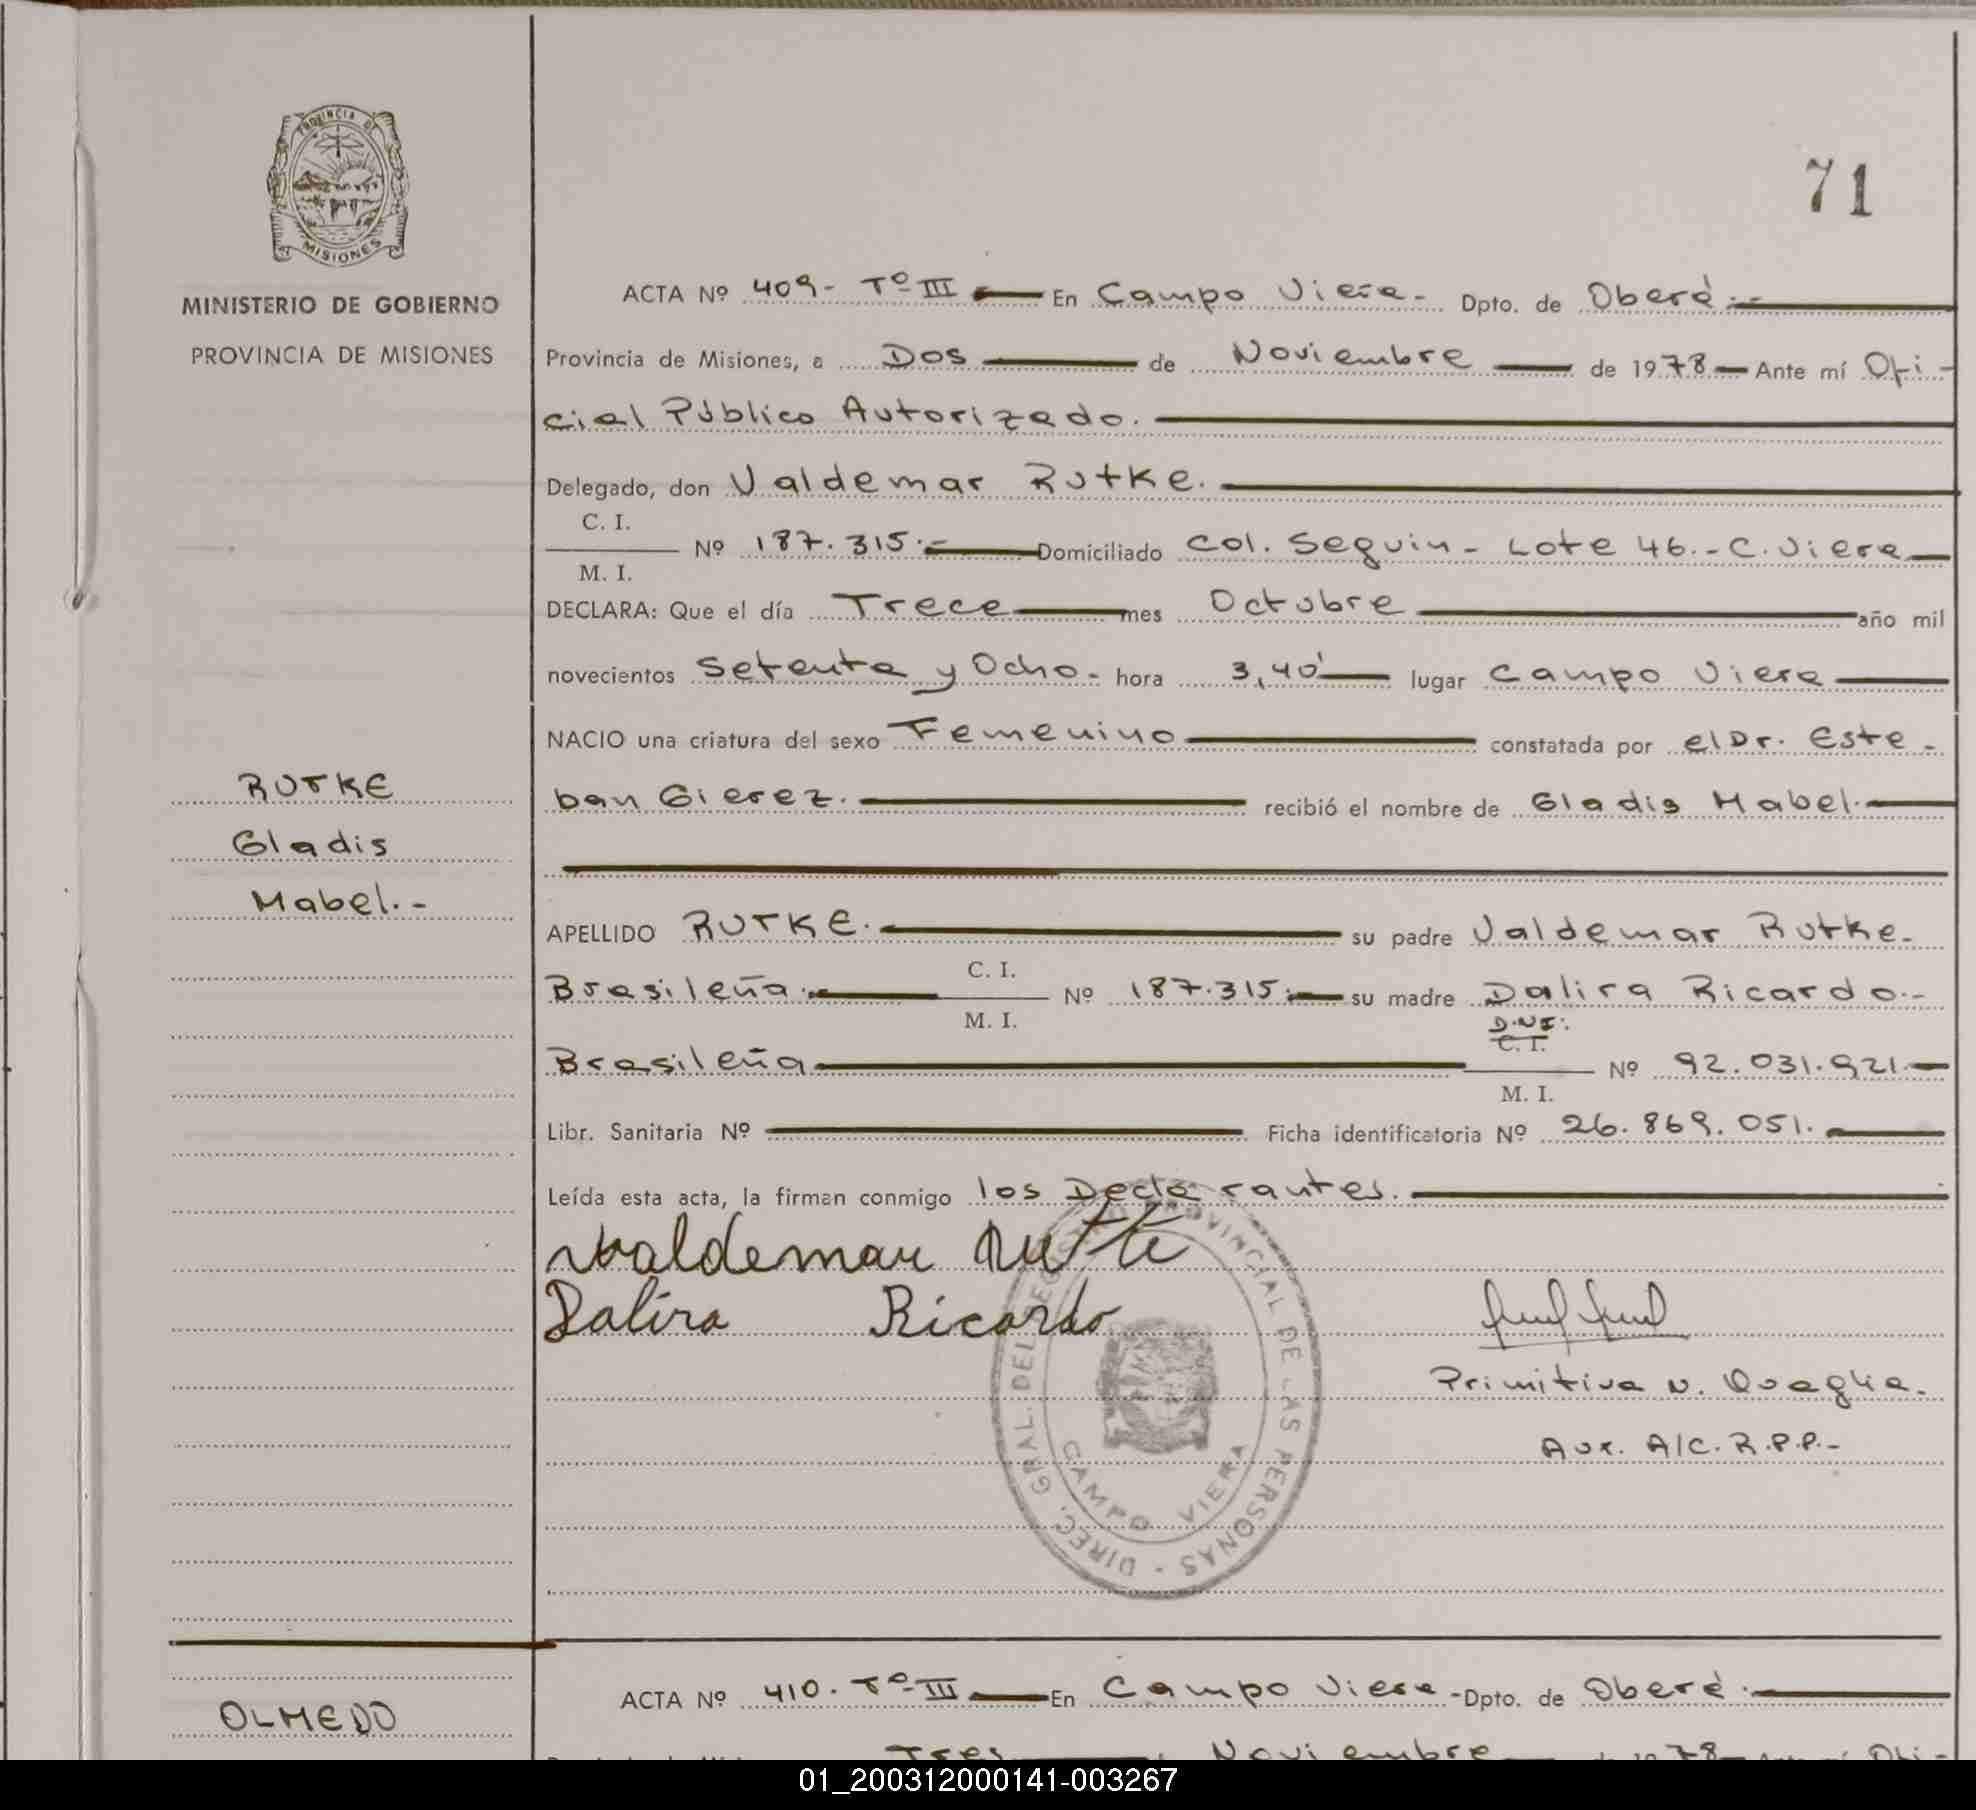 PROVINCIA DE
MISIONES
MINISTERIO DE GOBIERNO
PROVINCIA DE MISIONES
71
ACTA Nº 409- Tº III En Campo Viera- Dpto. de Oberá.-
Provincia de Misiones, a Dos de Noviembre de 1978 Ante mí Ofi-
cial Público Autorizado.
Delegado, don Valdemar Rutke.
C. I.
M. I.
Nº 187.315.- Domiciliado Col. Seguin- Lote 46.- C. Viera
DECLARA: Que el día Trece mes Octubre año mil
novecientos Setenta y Ocho- hora 3,40' lugar Campo Viera
NACIO una criatura del sexo Femenino constatada por el Dr. Este-
ban Gierez. recibió el nombre de Gladis Mabel.
RUTKE
Gladis
Mabel.-
APELLIDO RUTKE. su padre Valdemar Rutke-
Brasileña.- C. I. M. I. Nº 187.315.- su madre Dalira Ricardo.-
Brasileña D.N.I: C. I. M. I. Nº 92.031.921.-
Libr. Sanitaria Nº Ficha identificatoria Nº 26.869.051.
Leída esta acta, la firman conmigo los Declarantes.
Valdemar Rutke
Dalira Ricardo
Primitiva N. Quaglia.
Aux. A/C. R.P.P.-
DIREC. GRAL. DEL REGISTRO PROVINCIAL DE LAS PERSONAS -
CAMPO VIERA
OLMEDO
ACTA Nº 410. Tº III En Campo Viera- Dpto. de Oberá.
Tres Noviembre 1978
01_200312000141-003267